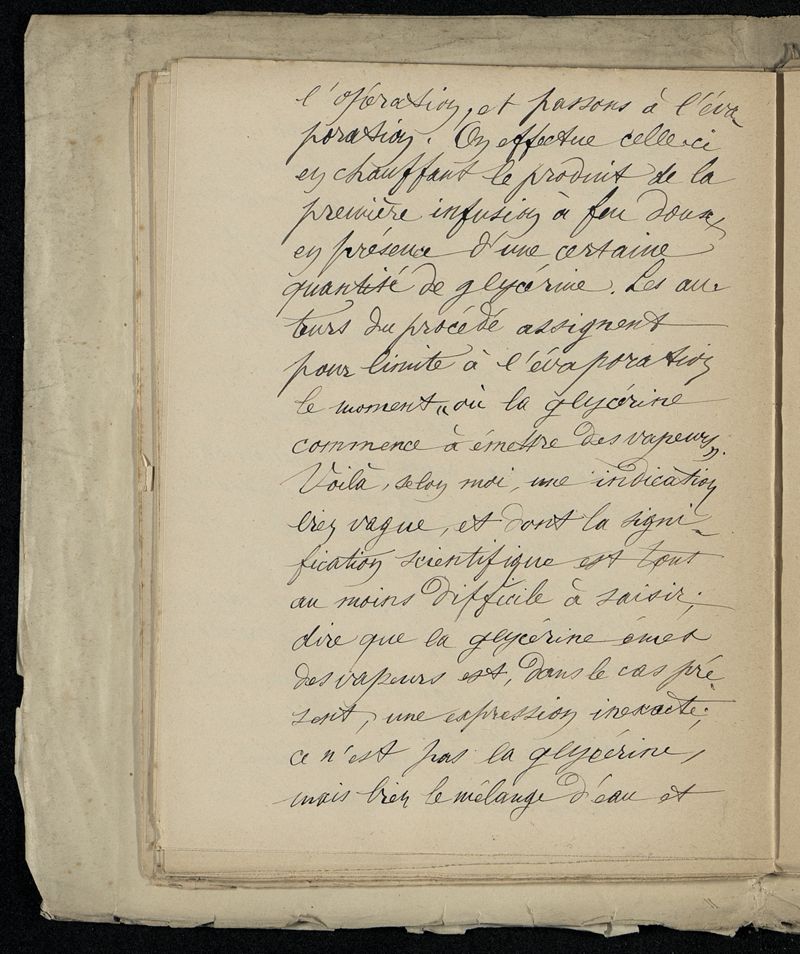 l'opération, et passons à l'éva-
poration. On effectue celle-ci
en chauffant le produit de la
première infusion à feu doux,
en présence d'une certaine
quantité de glycérine. Les au-
teurs du procédé assignent
pour limite à l'évaporation
le moment „où la glycérine
commence à émettre des vapeurs„.
Voilà, selon moi, une indication
bien vague, et dont la signi-
fication scientifique est tout
au moins difficile à saisir;
dire que la glycérine émet
des vapeurs est, dans le cas pré-
sent, une expression inexacte;
ce n'est pas la glycérine,
mais bien le mélange d'eau et